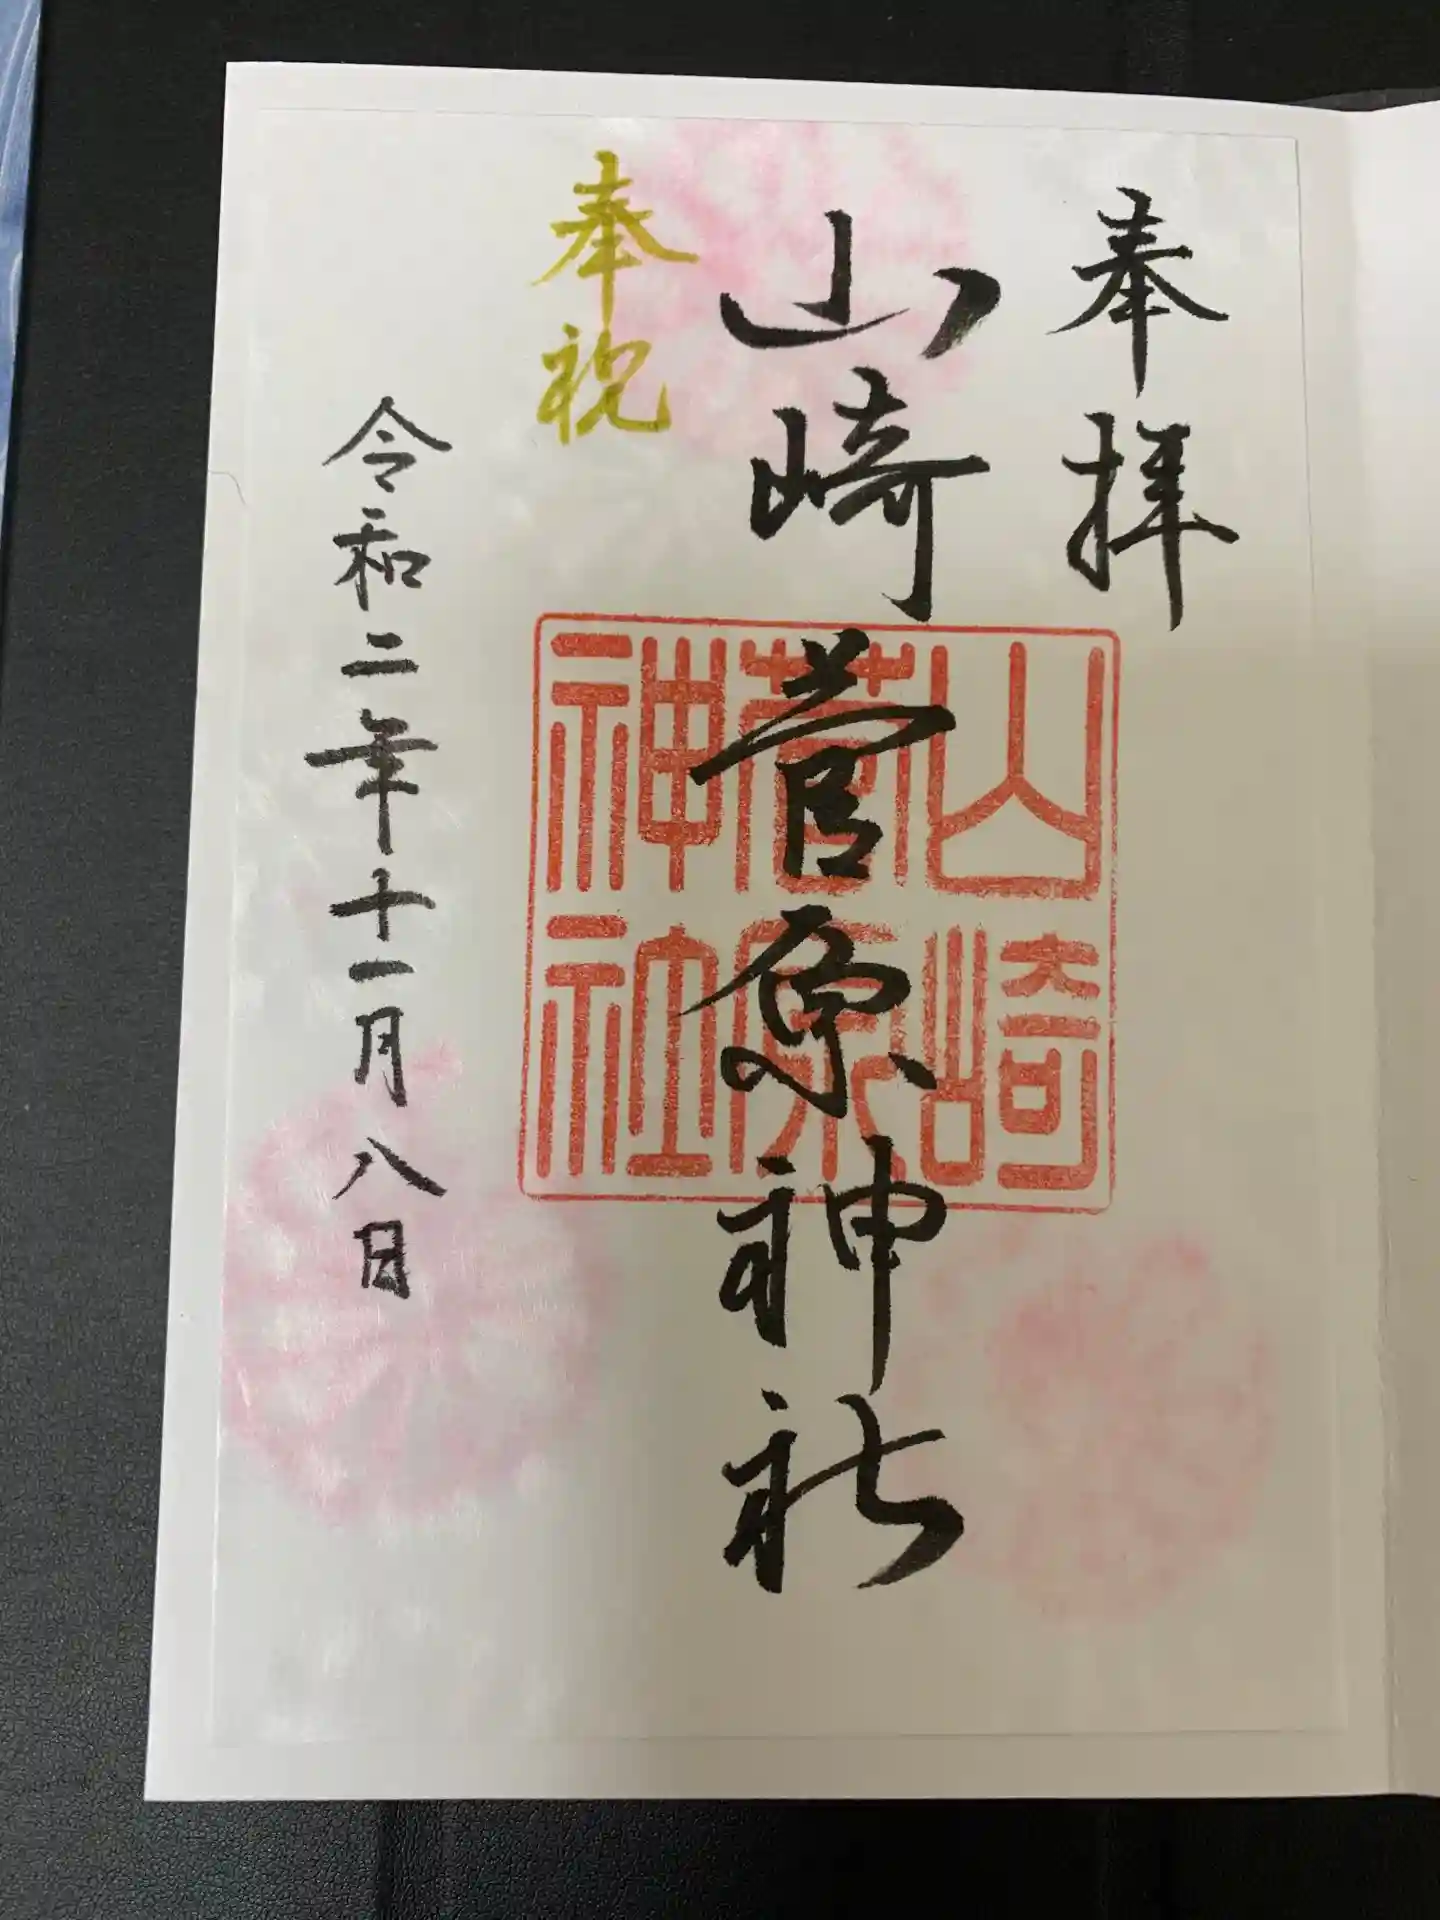 奉拝
山崎菅原神社
山崎
菅原
神社
奉祝
令和二年十一月八日